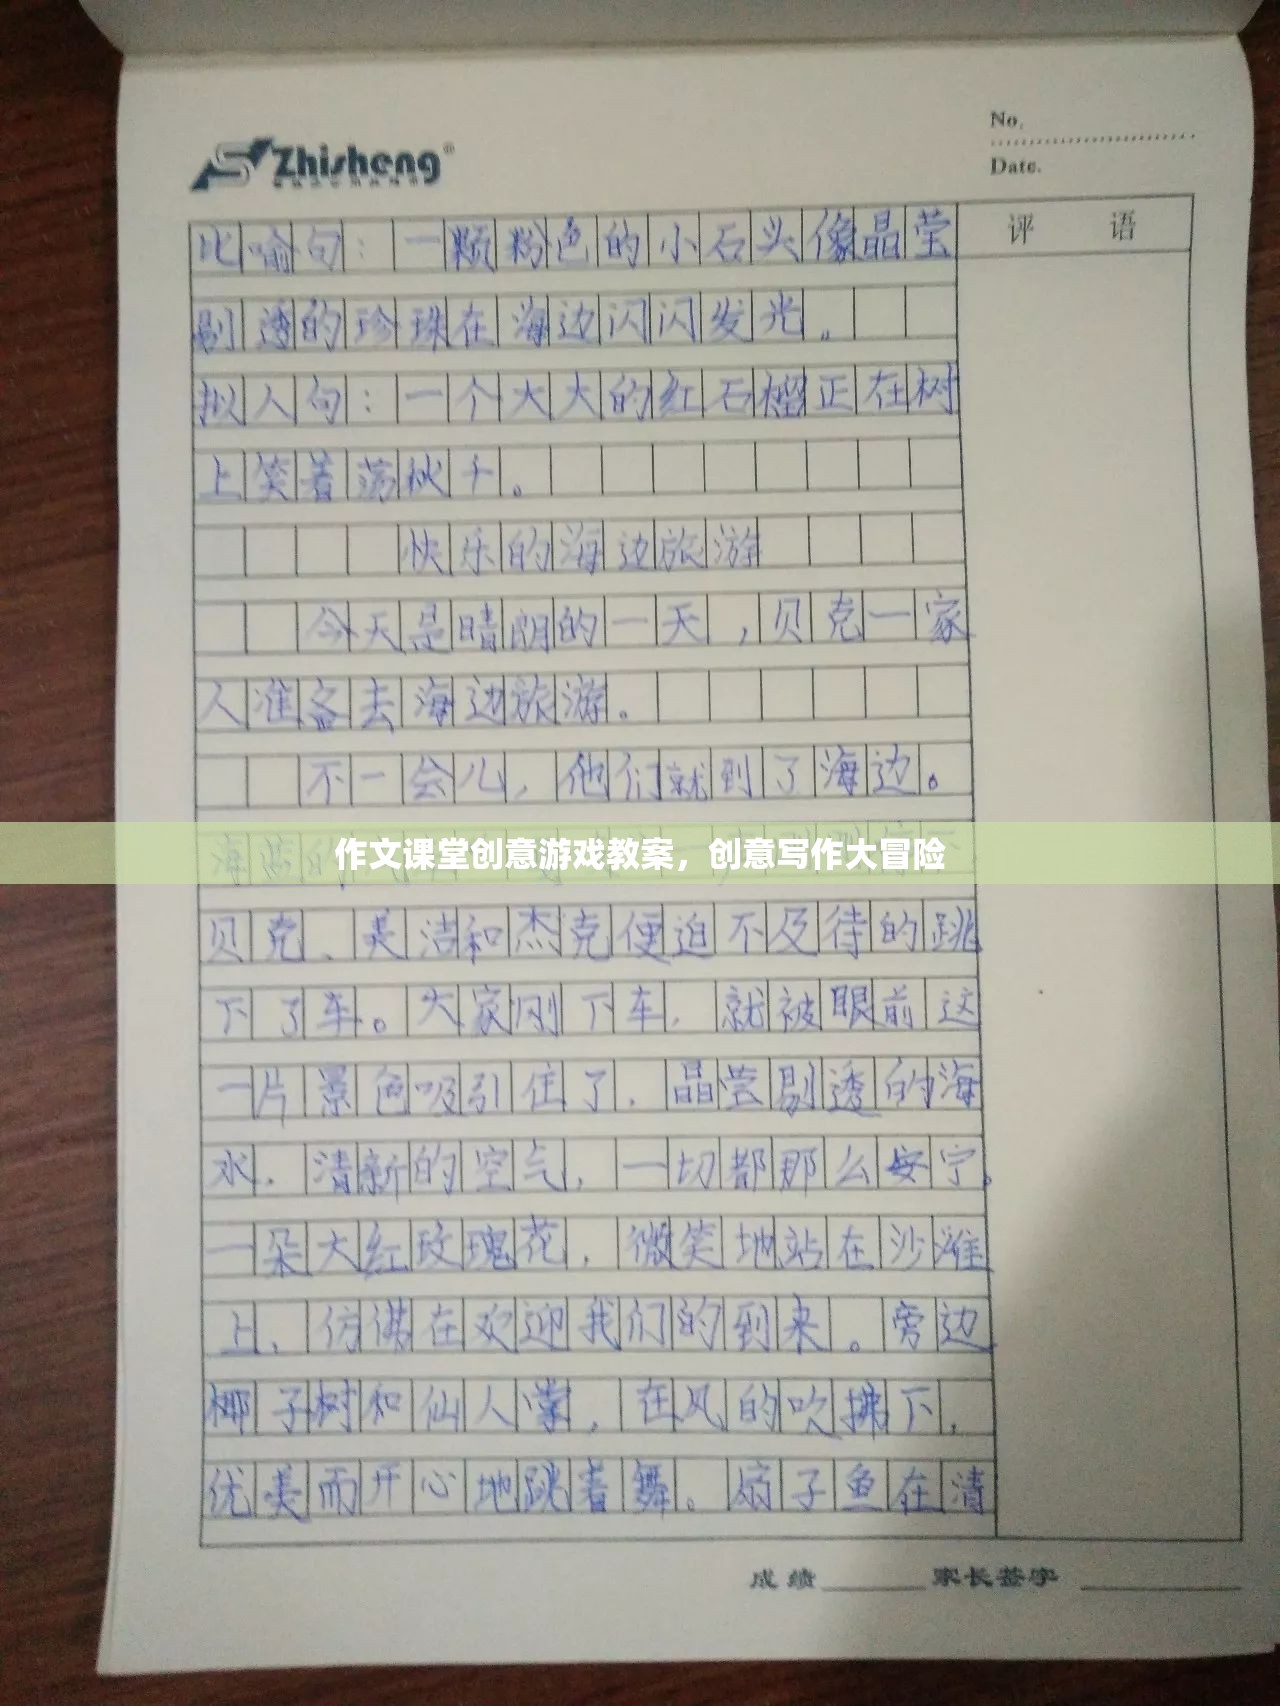 Zhisheng®
No.
Date.
评 语
比喻句：一颗粉色的小石头像晶莹
剔透的珍珠在海边闪闪发光。
拟人句：一个大大的红石榴正在树
上笑着荡秋千。
快乐的海边旅游
今天是晴朗的一天，贝克一家
人准备去海边旅游。
不一会儿，他们就到了海边。
海蓝的
作文课堂创意游戏教案，创意写作大冒险
贝克、美洁和杰克便迫不及待的跳
下了车。大家刚下车，就被眼前这
一片景色吸引住了，晶莹剔透的海
水，清新的空气，一切都那么安宁。
一朵大红玫瑰花，微笑地站在沙滩
上，仿偌在欢迎我们的到来。旁边
椰子树和仙人掌，在风的吹拂下，
优美而开心地跳着舞。扇子鱼在清
成绩 家长签字